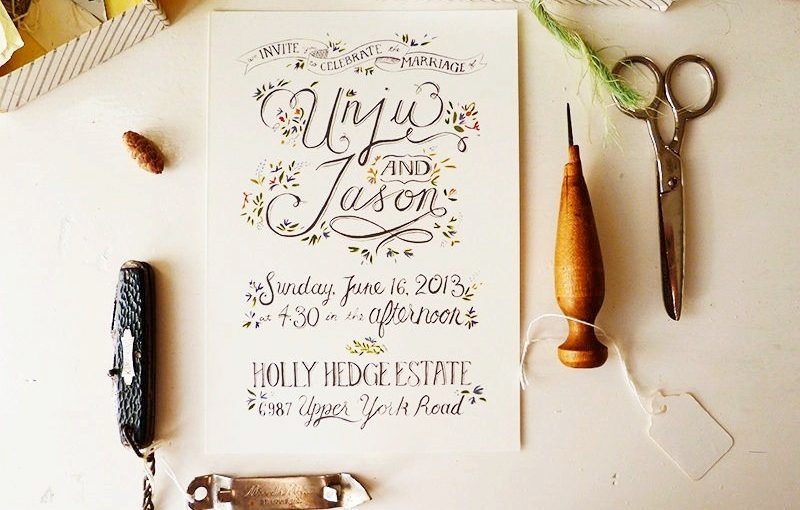 INVITE
to CELEBRATE the
MARRIAGE of
Unju
AND
Jason
Sunday, June 16, 2013,
at 4:30 in the afternoon
HOLLY HEDGE ESTATE
6987 Upper York Road